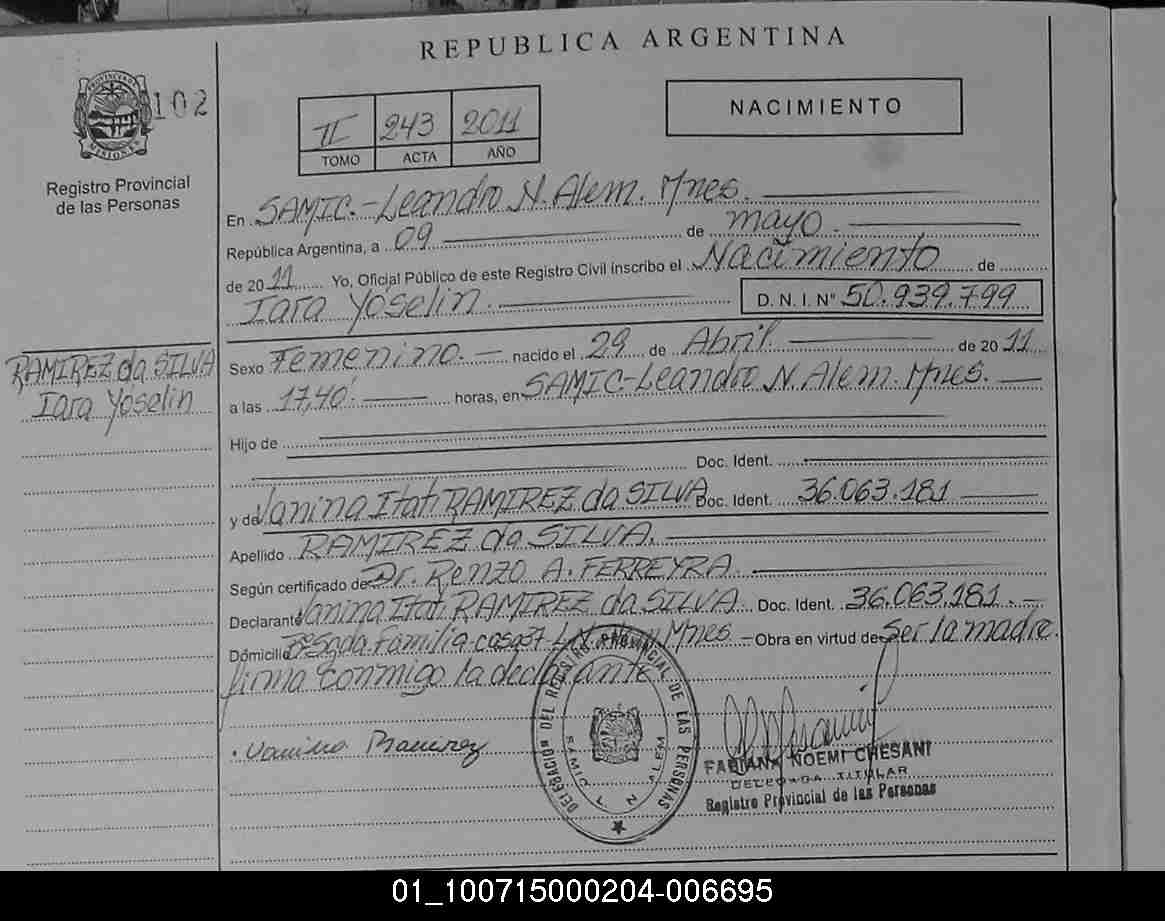 REPUBLICA ARGENTINA
PROVINCIA DE
MISIONES
102
Registro Provincial
de las Personas
II 243 2011
TOMO ACTA AÑO
NACIMIENTO
En SAMIC.-Leandro N. Alem. Mnes.
República Argentina, a 09 de mayo
de 2011 Yo, Oficial Público de este Registro Civil inscribo el Nacimiento de
Iara Yoselin D. N. I. N° 50.939.799
RAMIREZ da SILVA
Iara Yoselin
Sexo Femenino. nacido el 29 de Abril de 2011
a las 17,40' horas, en SAMIC-Leandro N. Alem. Mnes.
Hijo de
Doc. Ident.
y de Vanina Itatí RAMIREZ da SILVA Doc. Ident. 36.063.181
Apellido RAMIREZ da SILVA.
Según certificado de Dr. Renzo A. FERREYRA
Declarante Vanina Itatí RAMIREZ da SILVA Doc. Ident. 36.063.181.
Domicilio Sada Familia casa37-L.N. Alem Mnes Obra en virtud de Ser la madre.
firma conmigo la declarante
Vanina Ramirez
DELEGACION DEL REGISTRO PROVINCIAL DE LAS PERSONAS
SAMIC L. N. ALEM
FABIANA NOEMI CHESANI
DELEGADA TITULAR
Registro Provincial de las Personas
01_100715000204-006695